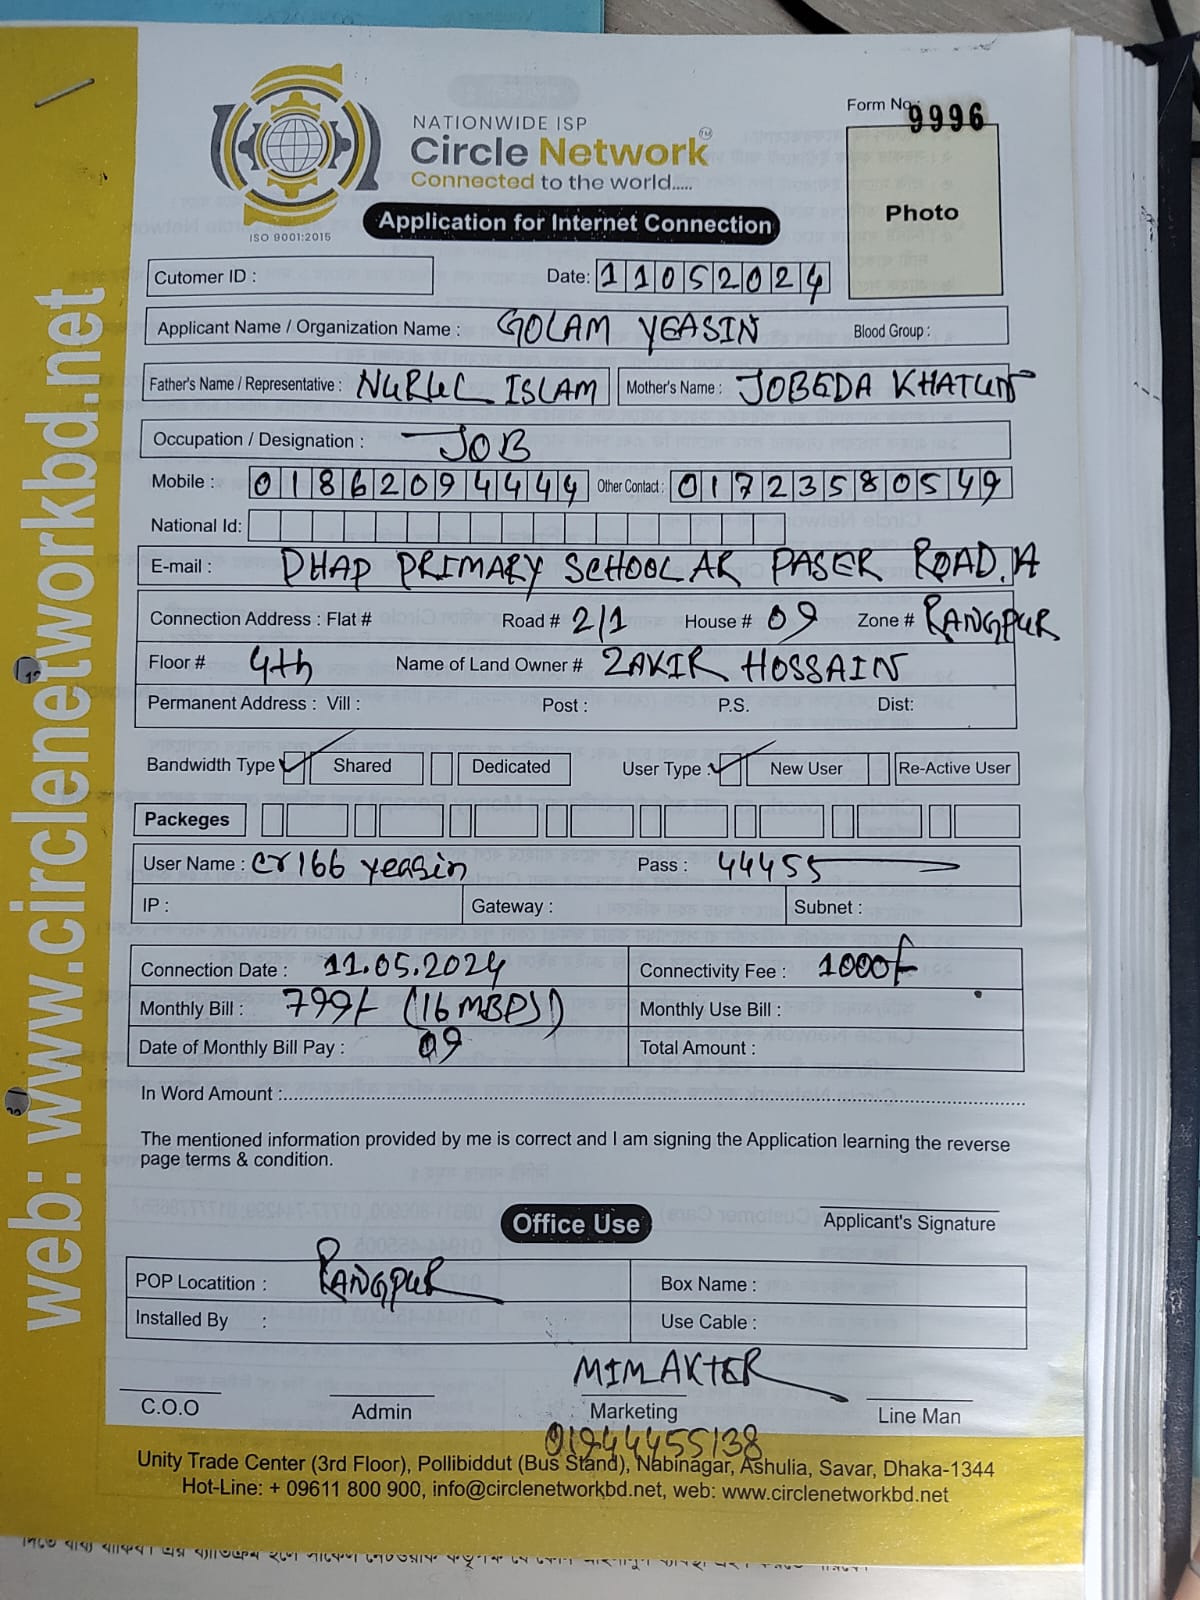 Form No: 9996
NATIONWIDE ISP
Circle Network TM
Connected to the world.....
ISO 9001:2015
Application for Internet Connection
Photo
Cutomer ID :
Date: 11052024
Applicant Name / Organization Name : GOLAM YEASIN Blood Group :
Father's Name / Representative : NURUL ISLAM Mother's Name : JOBEDA KHATUN
Occupation / Designation : JOB
Mobile : 01862094444 Other Contact : 01723580549
National Id:
E-mail : DHAP PRIMARY SCHOOL AR PASER ROAD.
Connection Address : Flat # Road # 2/1 House # 09 Zone # RANGPUR
Floor # 4th Name of Land Owner # ZAKIR HOSSAIN
Permanent Address : Vill : Post : P.S. Dist:
Bandwidth Type : Shared Dedicated User Type : New User Re-Active User
Packeges
User Name : cr166 yeasin Pass : 44455
IP : Gateway : Subnet :
Connection Date : 11.05.2024 Connectivity Fee : 1000/-
Monthly Bill : 799/- (16 MBPS) Monthly Use Bill :
Date of Monthly Bill Pay : 09 Total Amount :
In Word Amount :
The mentioned information provided by me is correct and I am signing the Application learning the reverse
page terms & condition.
Applicant's Signature
Office Use
POP Locatition : RANGPUR Box Name :
Installed By : Use Cable :
MIM AKTER
C.O.O Admin Marketing Line Man
01944455138
Unity Trade Center (3rd Floor), Pollibiddut (Bus Stand), Nabinagar, Ashulia, Savar, Dhaka-1344
Hot-Line: + 09611 800 900, info@circlenetworkbd.net, web: www.circlenetworkbd.net
web: www.circlenetworkbd.net